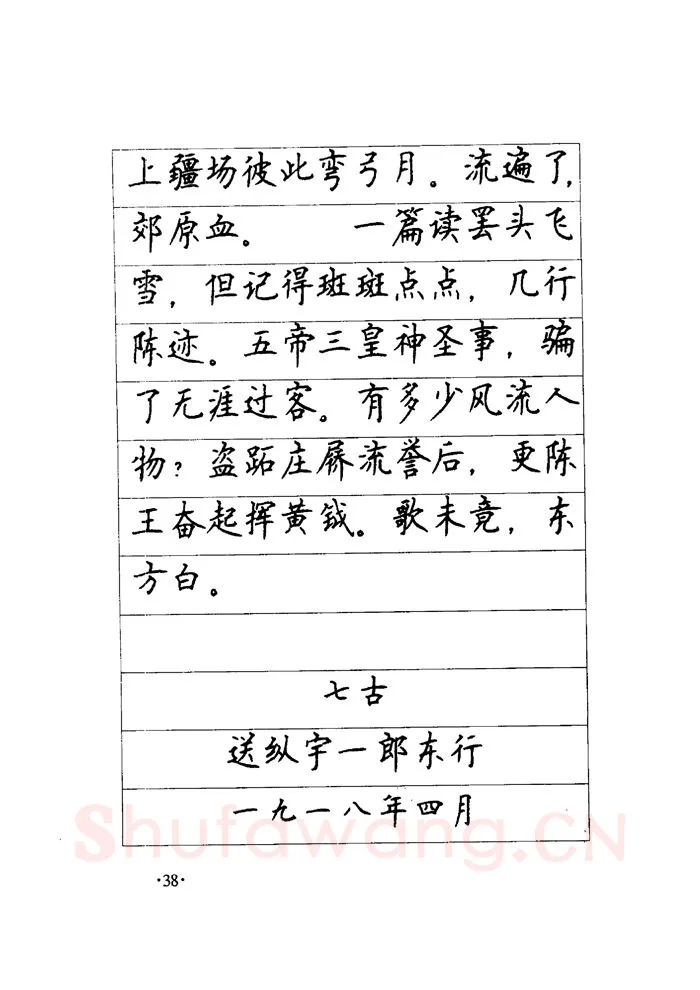 上疆场彼此弯弓月。流遍了,
郊原血。　　一篇读罢头飞
雪, 但记得斑斑点点, 几行
陈迹。五帝三皇神圣事, 骗
了无涯过客。有多少风流人
物? 盗跖庄屩流誉后, 更陈
王奋起挥黄钺。歌未竟, 东
方白。
七古
送纵宇一郎东行
一九一八年四月
Shufawang.CN
·38·